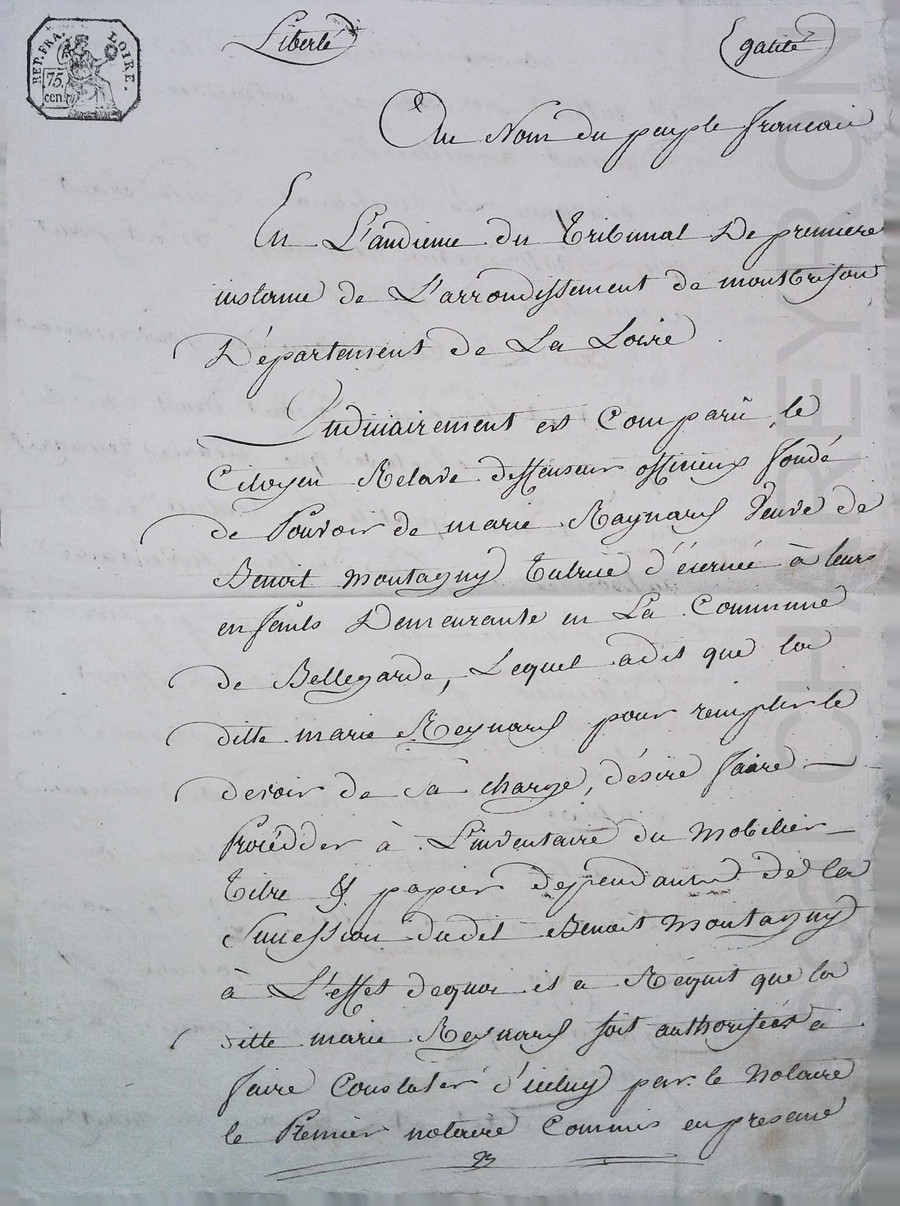 REP. FRA. LOIRE.
75.
cent.
Liberté Egalité
Au Nom du peuple francais
En L'audience du Tribunal De premiere
instance de L'arrondissement de montbrison
Département de La Loire
Judiciairement est Comparû le
Citoyen Relave deffenseur officieux fondé
de Pouvoir de marie Raynard Veuve de
Benoit Montagny Tutrice décernée à leurs
enfants Demeurante en La Commune
de Bellegarde, Lequel a dit que la
ditte marie Reynard pour remplir le
devoir de sa charge, désire faire
Procédder à L'inventaire du Mobilier
Titre & papier deppendant de la
Succession dudit Benoit Montagny
à L'effet dequoi il a Réquit que la
ditte marie Reynard soit authorisées a
faire Constater d'icluy par le Notaire
le Premier notaire Commis en presence
CHAREYRON